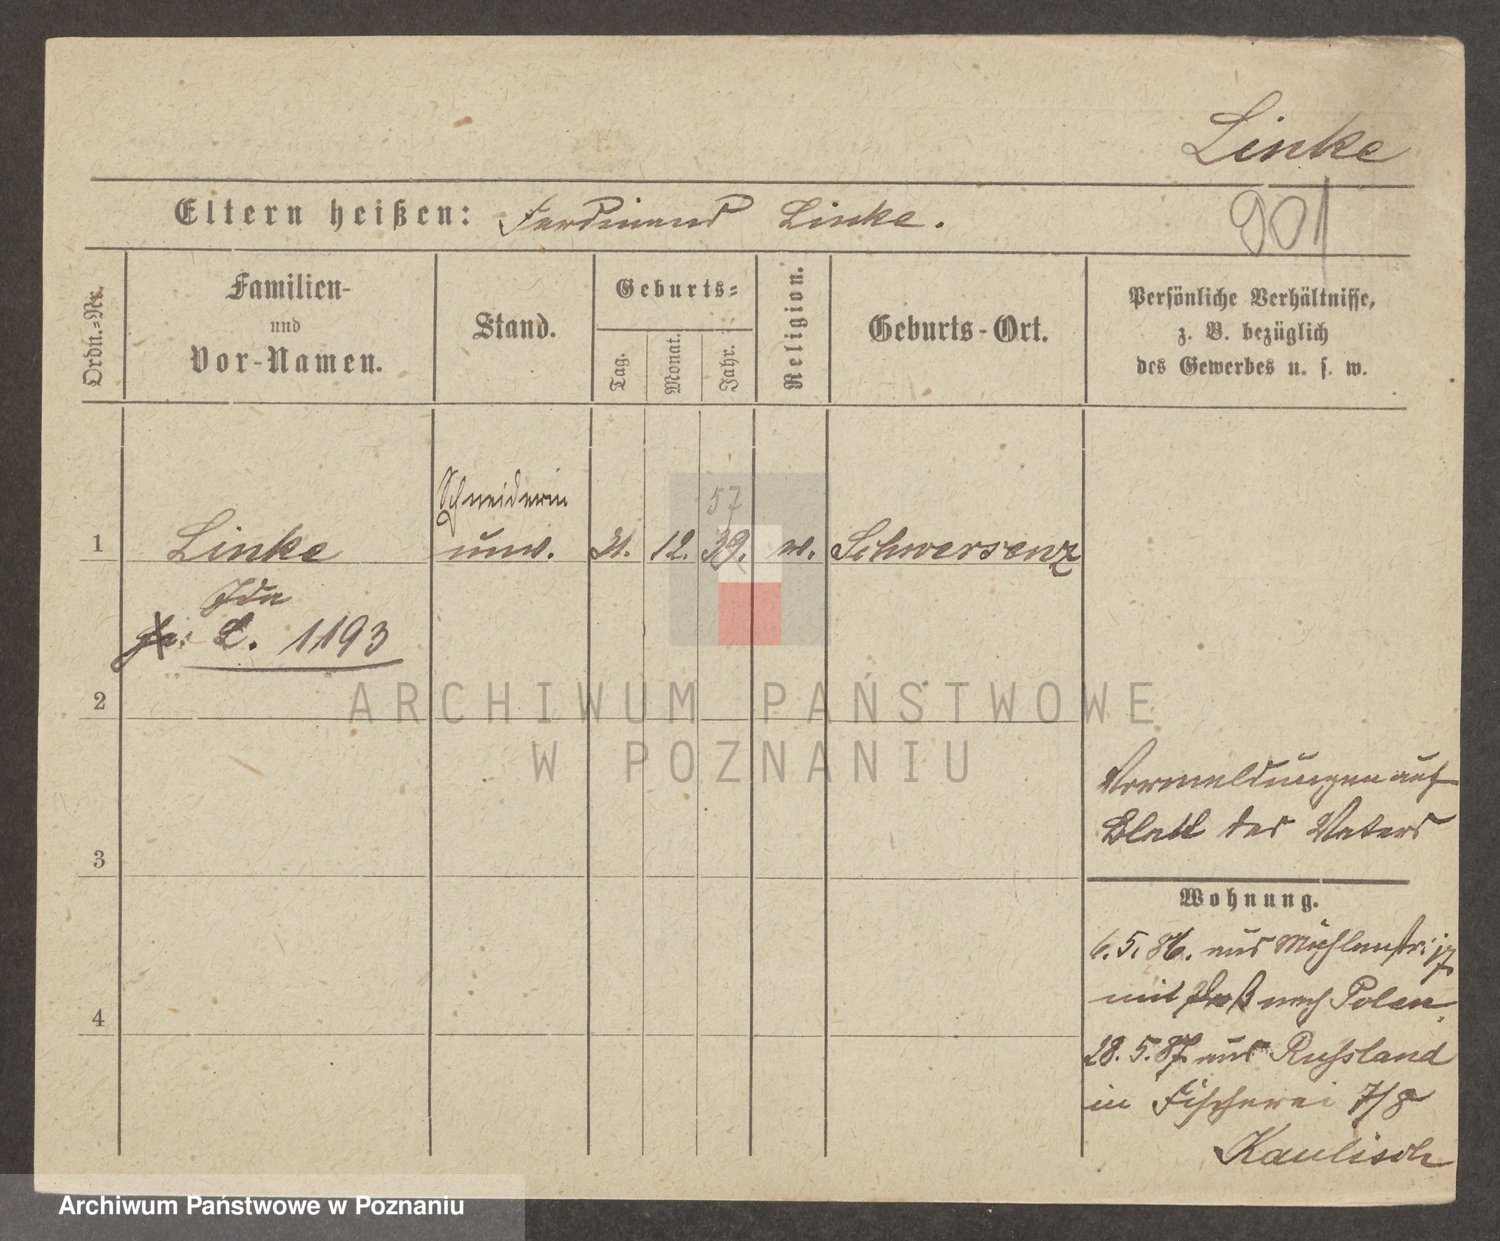 Linke
Eltern heißen: Ferdinand Linke.
901
Ordn.=Nr.
Familien-
und
Vor-Namen.
Stand.
Geburts=
Tag.
Monat.
Jahr.
Religion.
Geburts-Ort.
Persönliche Verhältnisse,
z. B. bezüglich
des Gewerbes u. s. w.
Schneiderin
57
1 Linke unv. 31. 12. 39. Schwersenz
Ida
L. 1193
2
ARCHIWUM PAŃSTWOWE
W POZNANIU
Vormeldungen auf
Blatt des Vaters
3
Wohnung.
6. 5. 86. aus Mühlenstr: 17
mit Paß nach Polen.
4
28. 5. 87. aus Russland
in Fischerei 7/8
Kaulisch
Archiwum Państwowe w Poznaniu